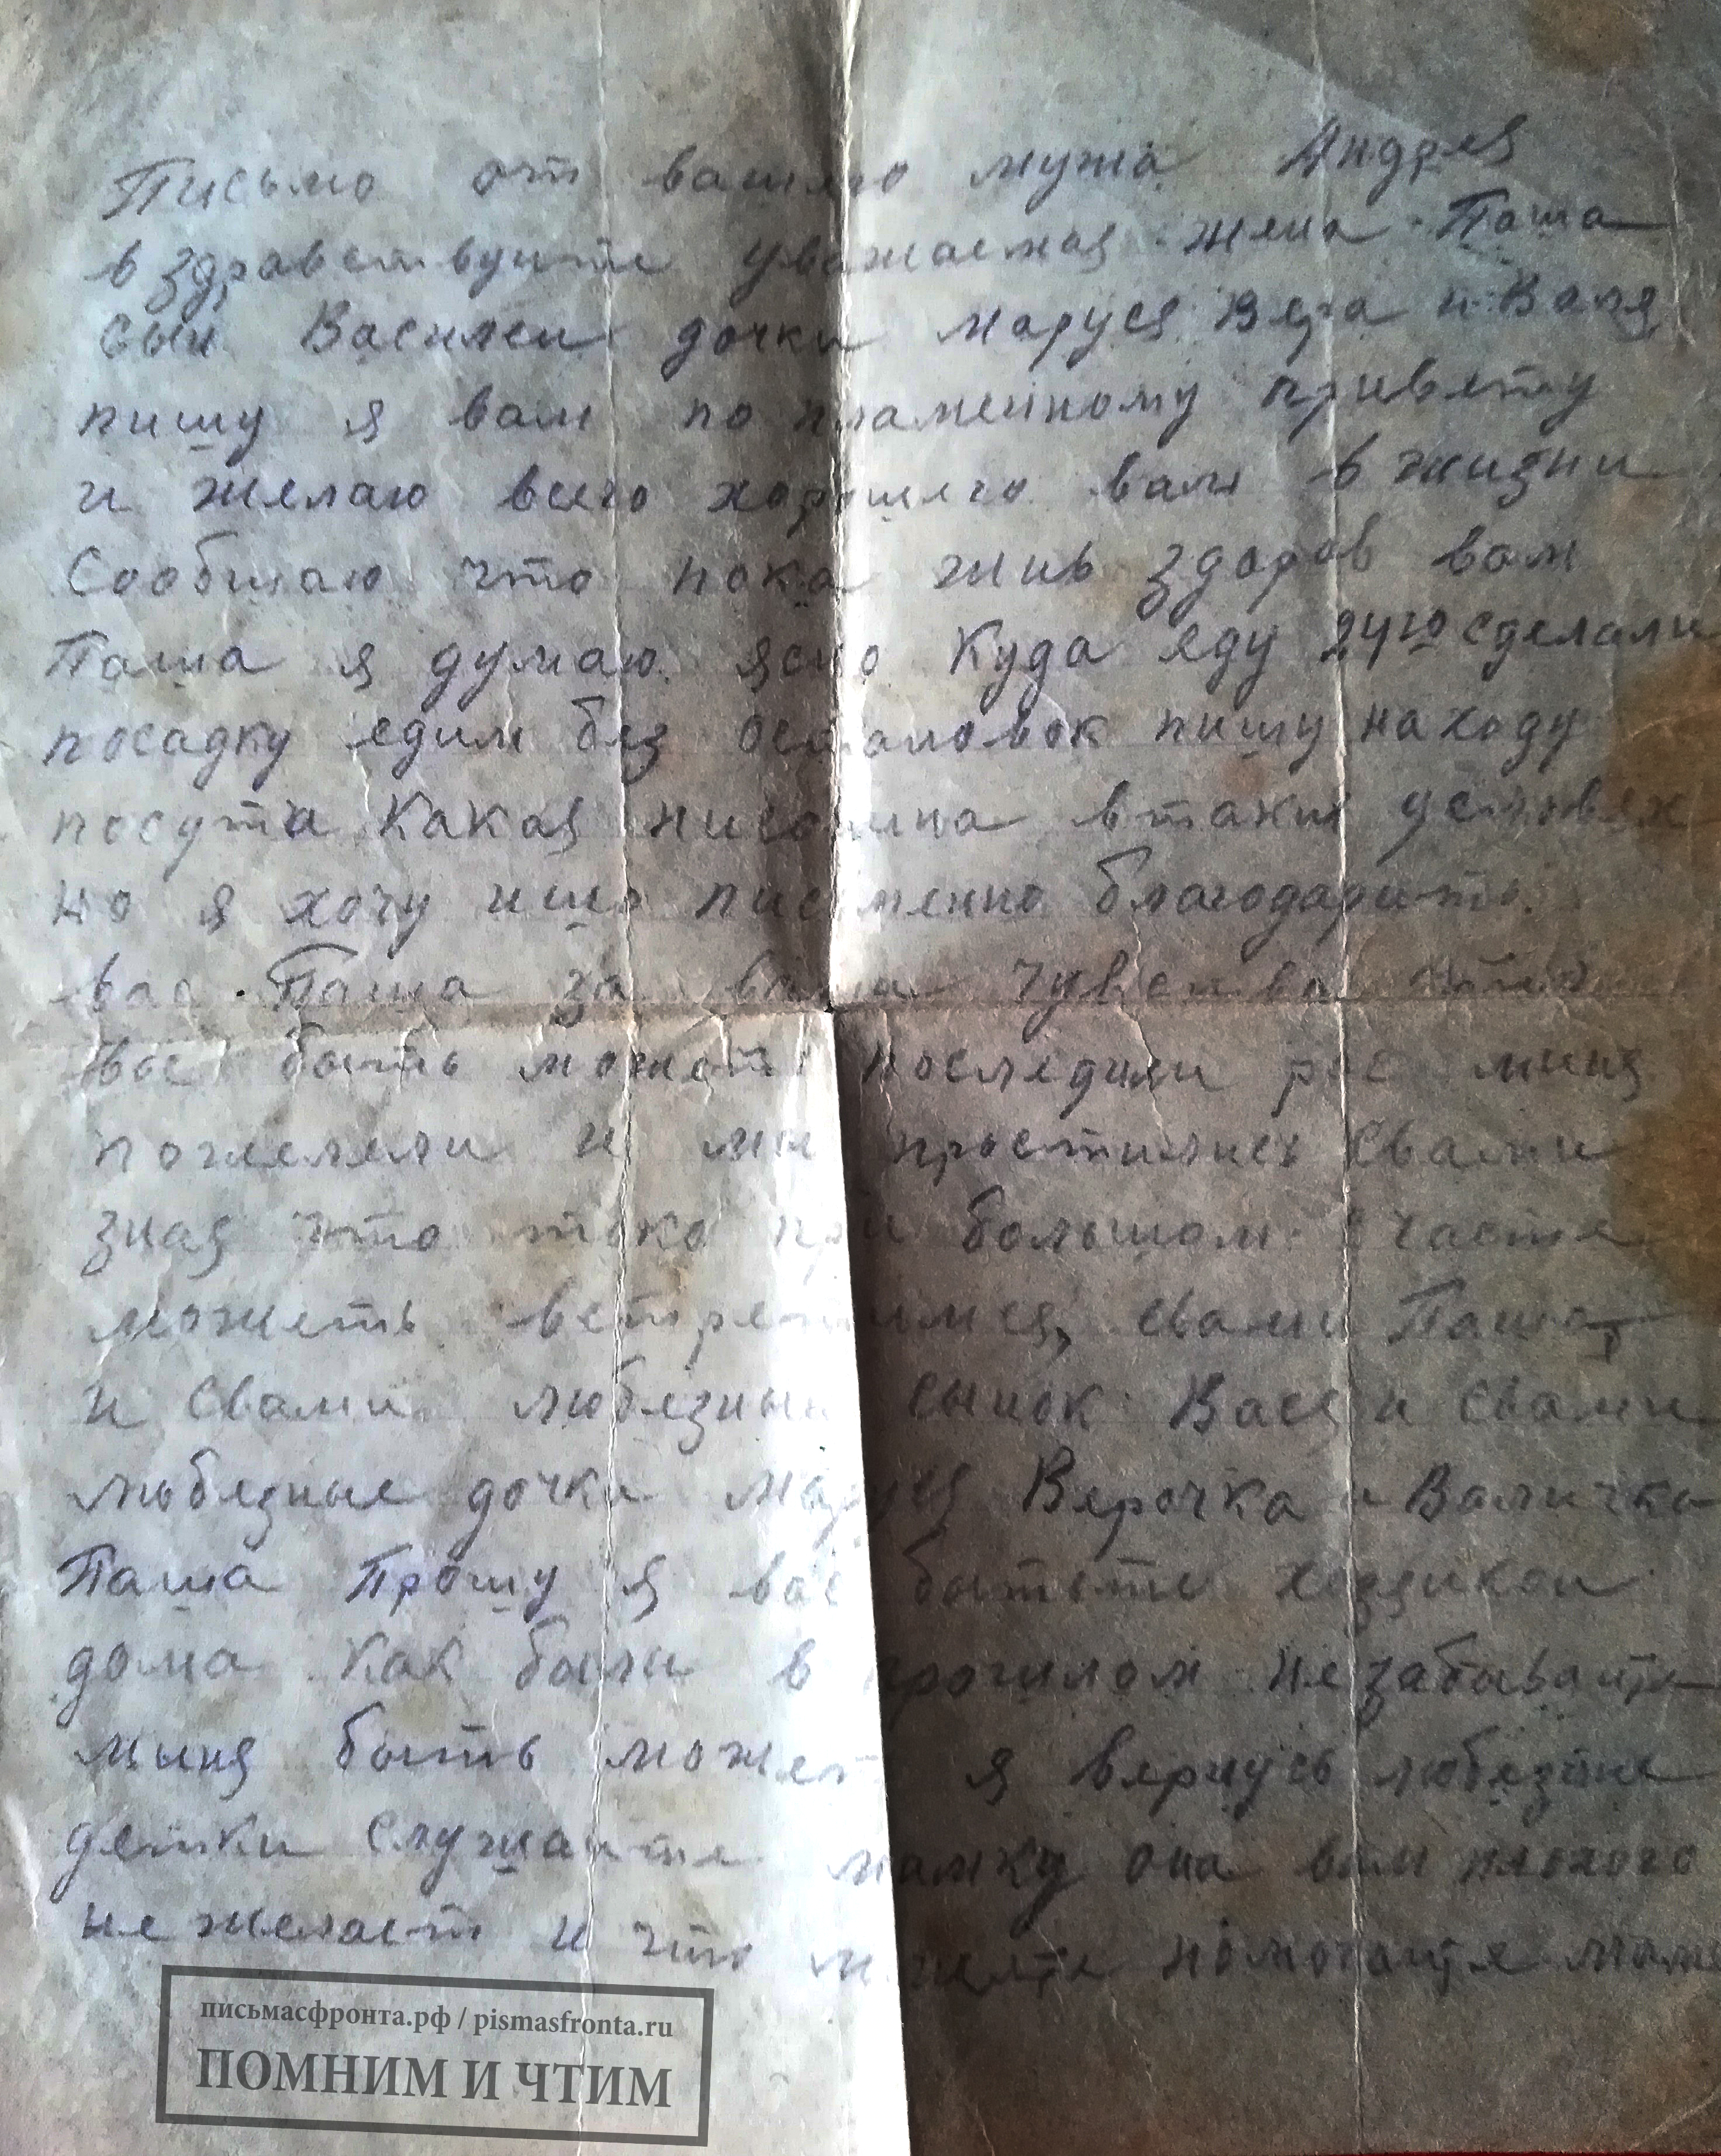 Письмо от вашего мужа Андрея
в здравствуите уважаемая жена Паша
сын Василеи дочки Маруся Вера и Валя
пишу я вам по пламенному привету
и желаю всего хорошего вам в жизни
Сообщаю что пока жив здоров вам
Паша я думаю ясно куда еду 24го сделали
посадку едим без остановок пишу находу
посути какая письмина втаких условях
но я хочу ишо писменно благодарить
вас Паша за ваша чувства
вы быть можеть последнии рас миня
пожелели и мы простились свами
зная что токо при большом счастя
можеть встретимся, свами Паша
и свами любезныи сынок Вася и свами
любезные дочки Маруся Верочка и Валичка
Паша Прошу я вас бытьте хозяикои
дома как были в прошлом не забываите
миня быть может я вернусь любезные
детки слушаите мамку она вам плохого
не желает и что можете помогаите маме
письмасфронта.рф / pismasfronta.ru
ПОМНИМ И ЧТИМ